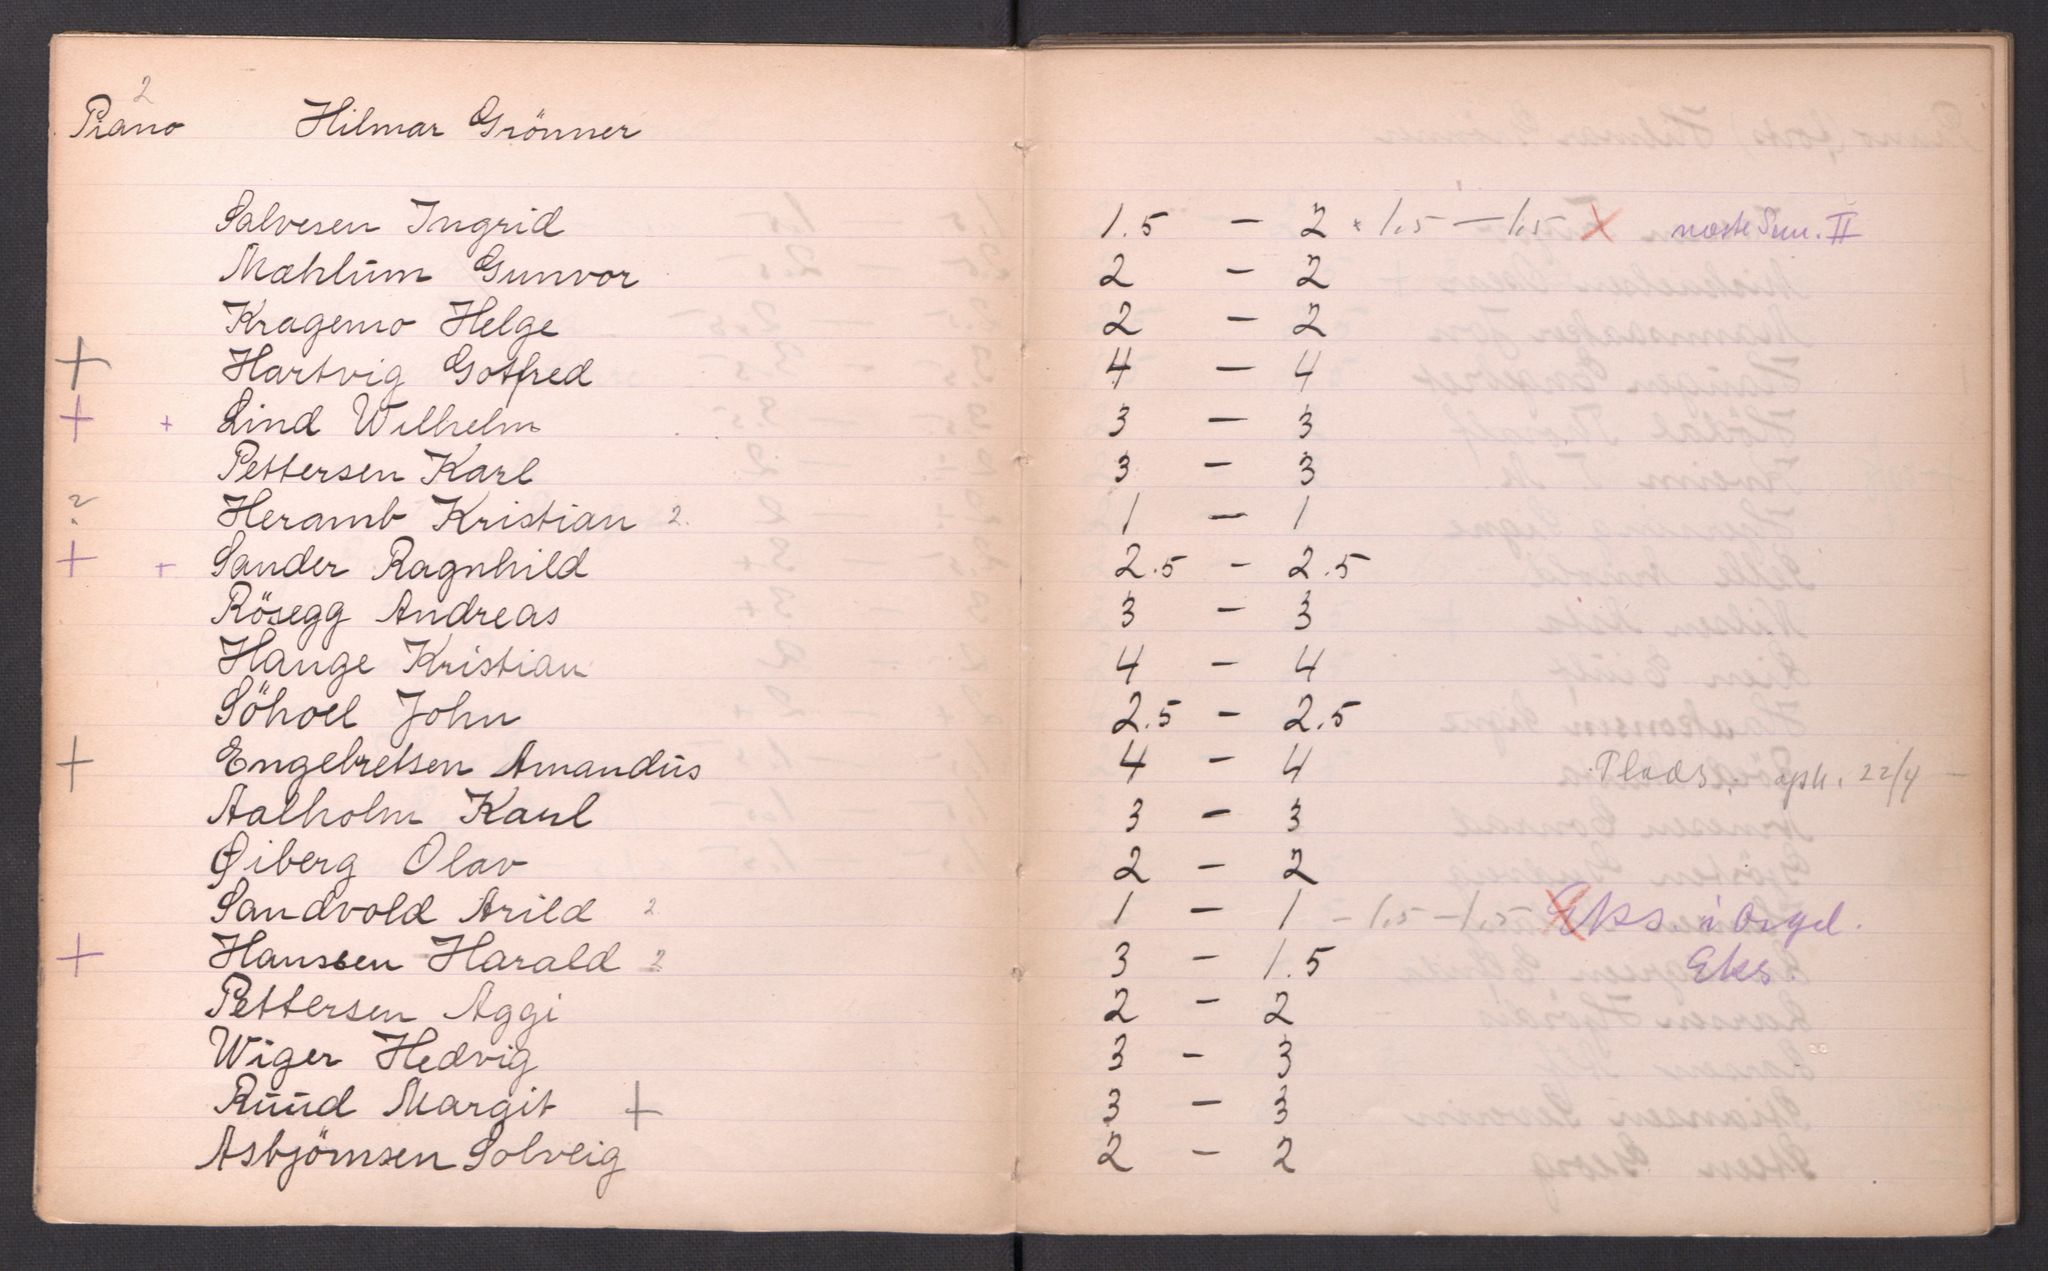 2
Piano Hilmar Grönner
Salvesen Ingrid 1.5 — 2 × 1,5 — 1,5 × næste Sem. II
Mæhlum Gunvor 2 — 2
Kragemo Helge 2 — 2
+ Hartvig Gotfred 4 — 4
+ + Lind Wilhelm 3 — 3
Pettersen Karl 3 — 3
? Heramb Kristian 2. 1 — 1
+ + Sander Ragnhild 2.5 — 2.5
Rösegg Andreas 3 — 3
Hauge Kristian 4 — 4
Söhoel John 2.5 — 2.5
+ Engebretsen Amandus 4 — 4 Plads. oph. 22/4 —
Aalholm Karl 3 — 3
Øiberg Olav 2 — 2
Sandvold Arild 2 1 — 1 — 1,5 — 1,5 × Eks. i Orgel.
+ Hanssen Harald 2 3 — 1.5 Eks.
Pettersen Aggi 2 — 2
Wiger Hedvig 3 — 3
Ruud Margit + 3 — 3
Asbjörnsen Solveig 2 — 2